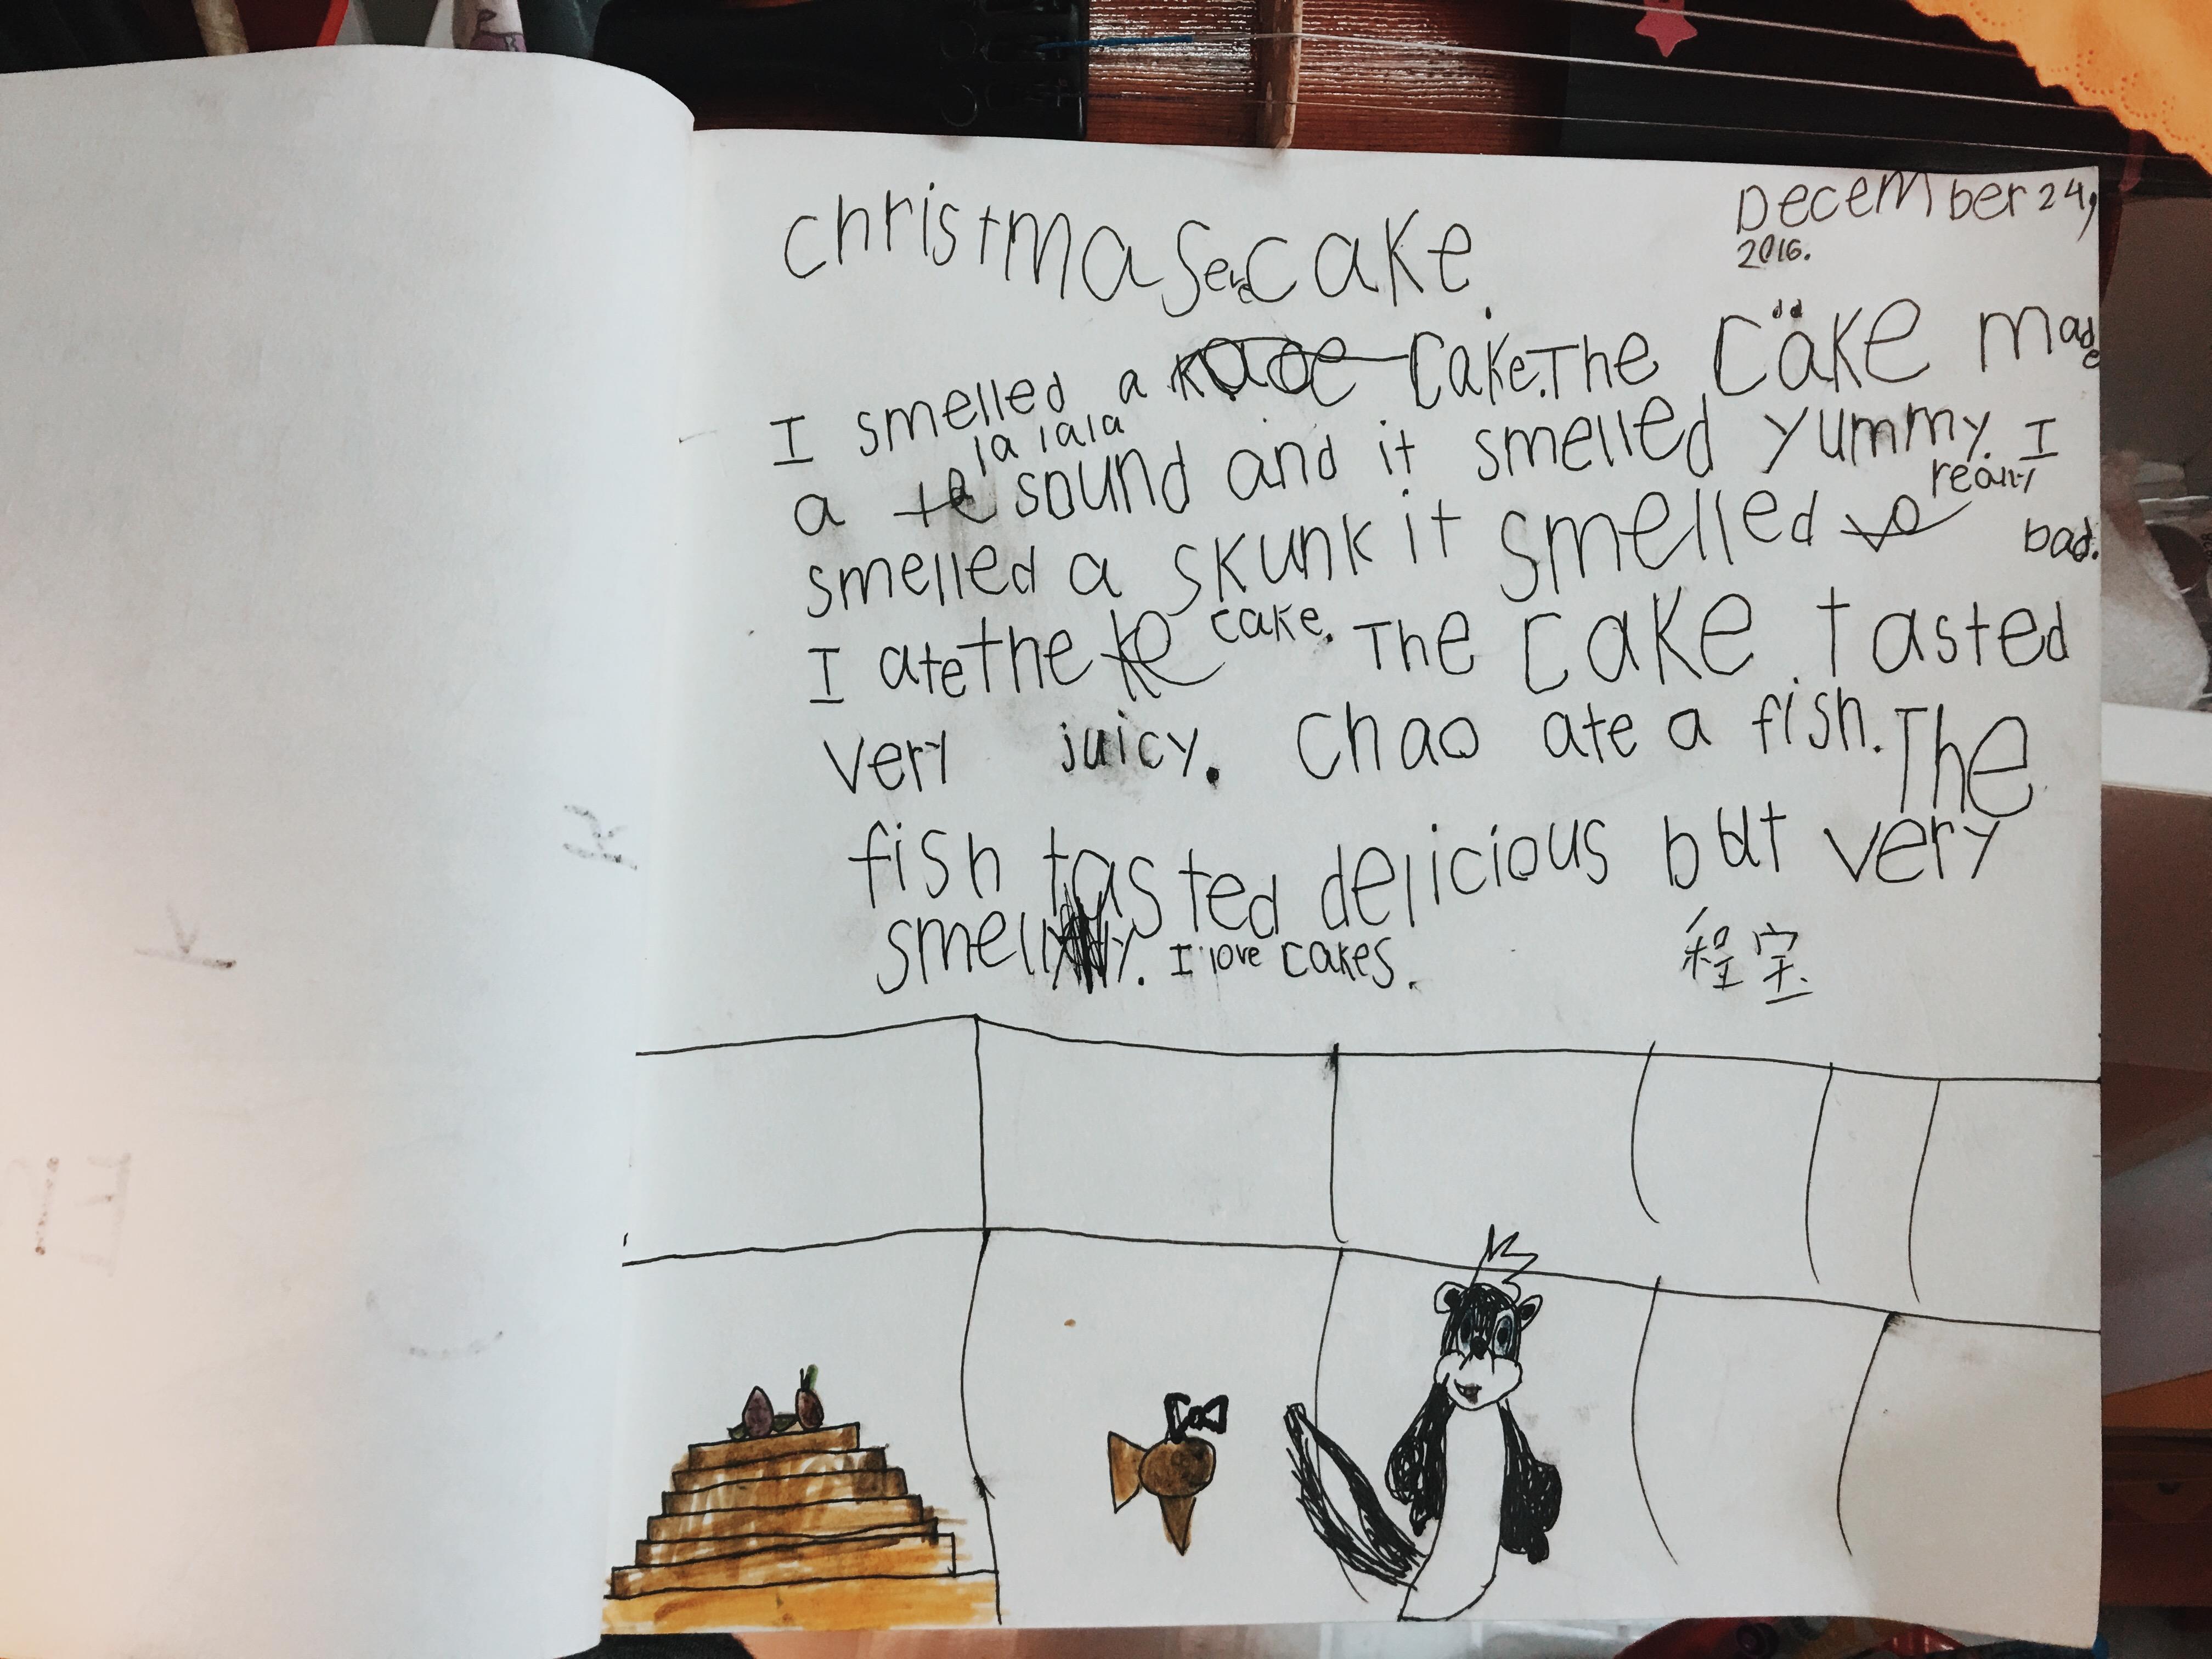 christmas eve cake.
December 24,
2016.
I smelled a cake. The cake made
a la lala sound and it smelled yummy. I
smelled a skunk it smelled really bad.
I ate the cake. The cake tasted
very juicy. Chao ate a fish. The
fish tasted delicious but very
smelly. I love cakes.
程宝